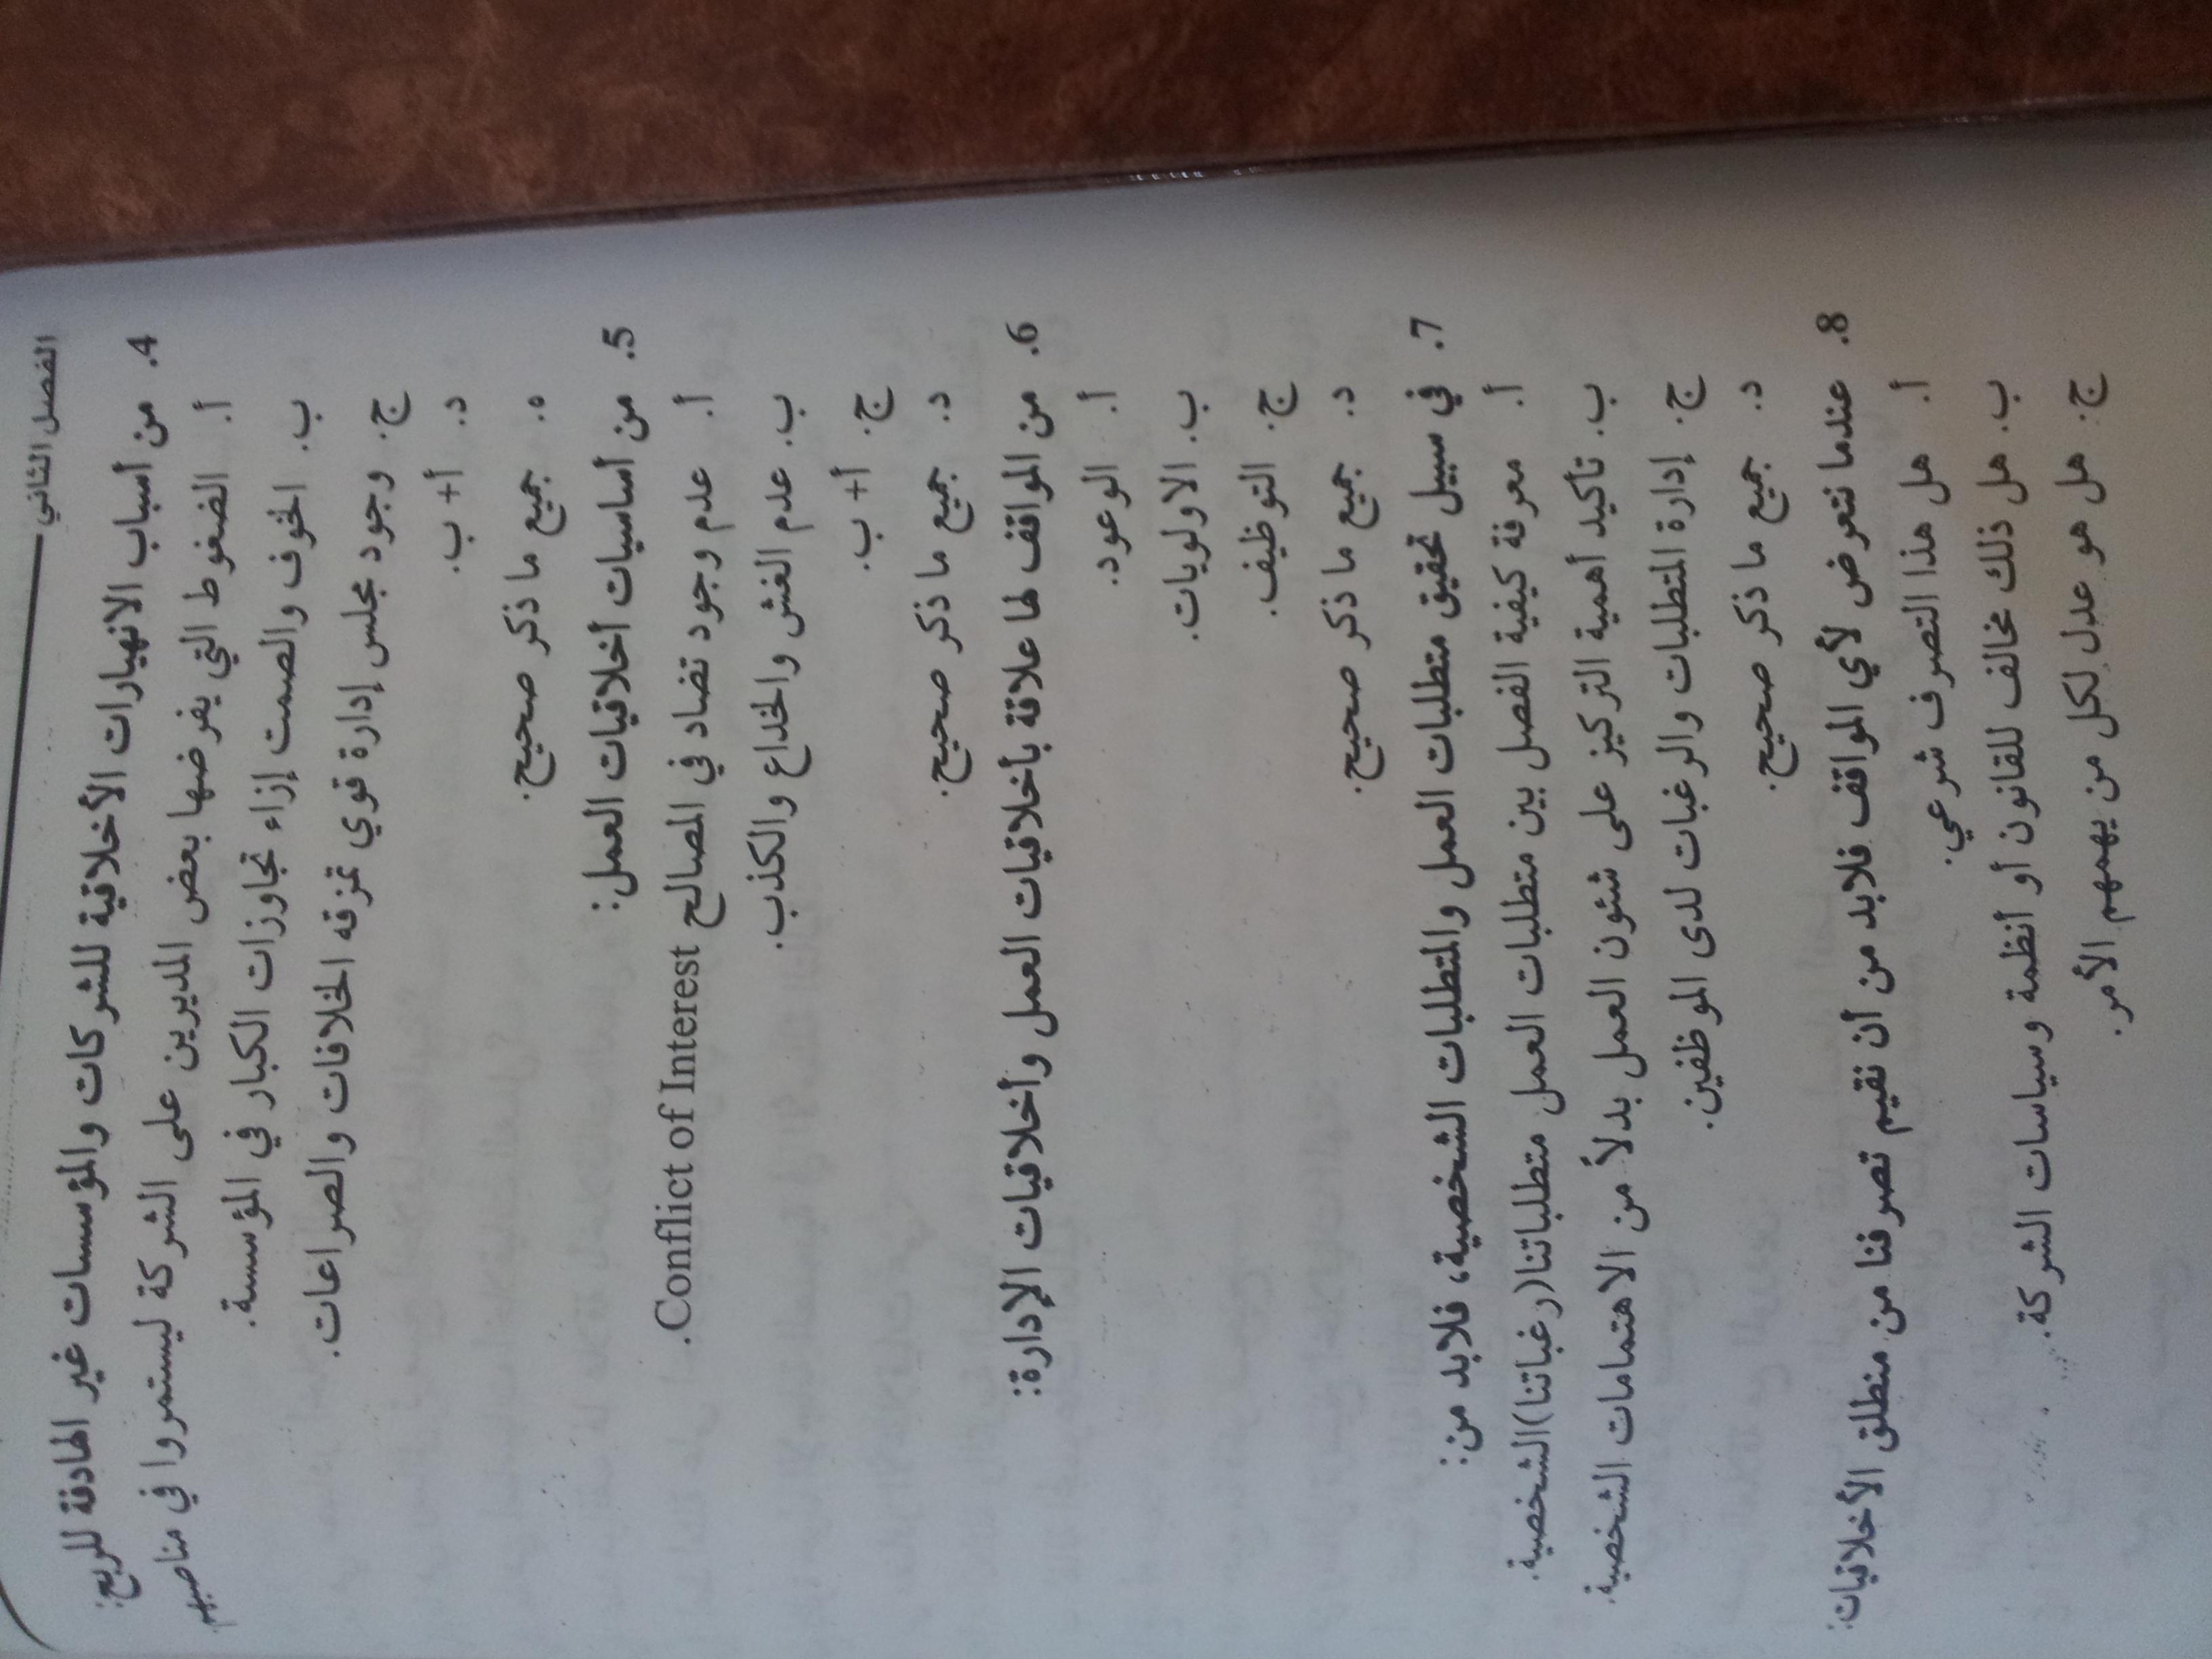 الفصل الثاني
4. من أسباب الانهيارات الأخلاقية للشركات والمؤسسات غير الهادفة للربح:
أ. الضغوط التي يفرضها بعض المديرين على الشركة ليستمروا في مناصبهم
ب. الخوف والصمت إزاء تجاوزات الكبار في المؤسسة.
ج. وجود مجلس إدارة قوي تمزقه الخلافات والصراعات.
د. أ+ ب.
ه. جميع ما ذكر صحيح.
5. من أساسيات أخلاقيات العمل:
أ. عدم وجود تضاد في المصالح Conflict of Interest.
ب. عدم الغش والخداع والكذب.
ج. أ+ ب.
د. جميع ما ذكر صحيح.
6. من المواقف لها علاقة بأخلاقيات العمل وأخلاقيات الإدارة:
أ. الوعود.
ب. الاولويات.
ج. التوظيف.
د. جميع ما ذكر صحيح.
7. في سبيل تحقيق متطلبات العمل والمتطلبات الشخصية، فلابد من:
أ. معرفة كيفية الفصل بين متطلبات العمل متطلباتنا(رغباتنا)الشخصية.
ب. تأكيد أهمية التركيز على شئون العمل بدلاً من الاهتمامات الشخصية.
ج. إدارة المتطلبات والرغبات لدى الموظفين.
د. جميع ما ذكر صحيح.
8. عندما نتعرض لأي المواقف فلابد من أن نقيم تصرفنا من منطلق الأخلاقيات:
أ. هل هذا التصرف شرعي.
ب. هل ذلك مخالف للقانون أو أنظمة وسياسات الشركة.
ج. هل هو عدل لكل من يهمهم الأمر.